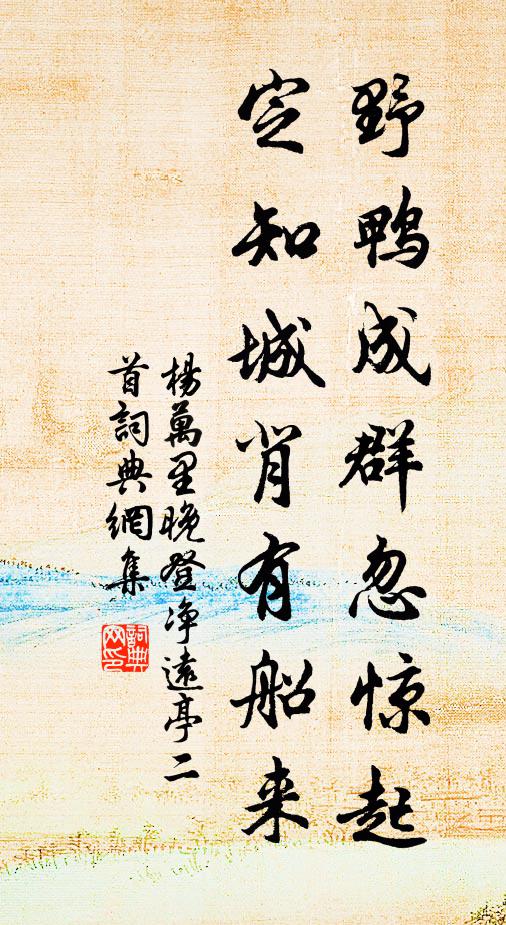 野鸭成群忽惊起
定知城肖有船来
楊萬里晚登净遠亭二
首詞典網集
詞典
网印